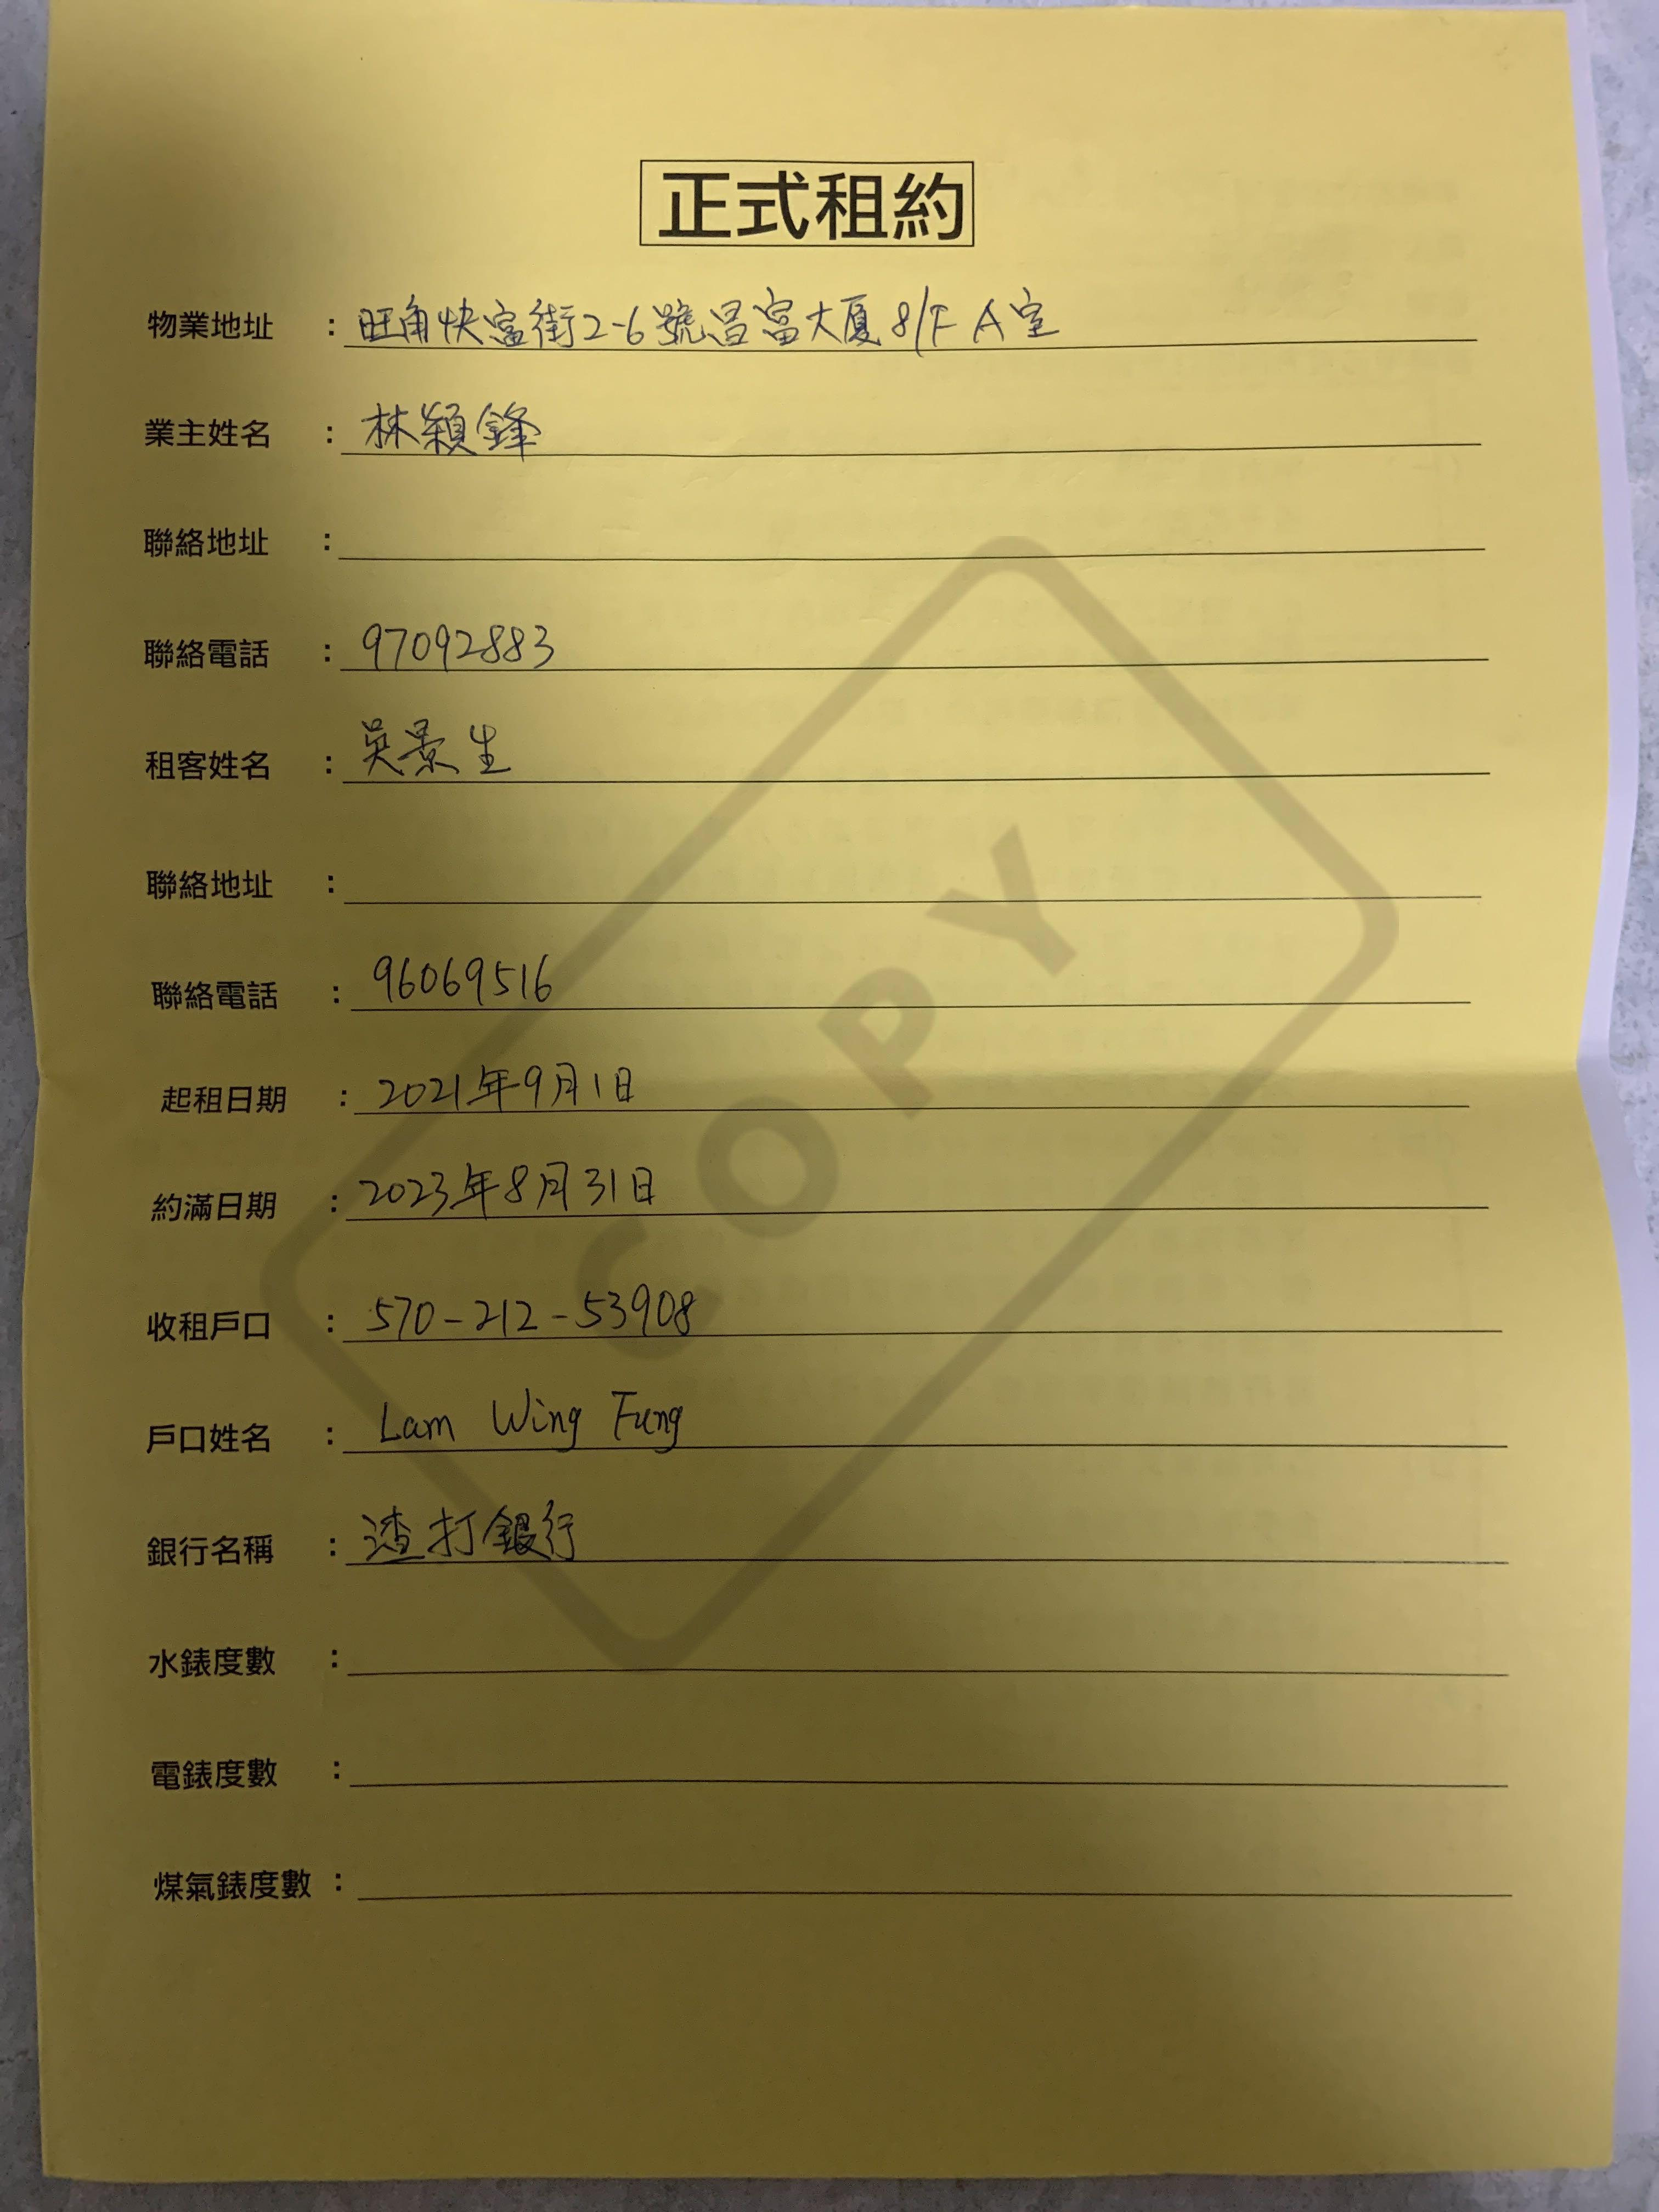 正式租約
物業地址 : 旺角快富街2-6號昌富大廈8/F A室
業主姓名 : 林穎鋒
聯絡地址 :
聯絡電話 : 97092883
租客姓名 : 吳景生
聯絡地址 :
聯絡電話 : 96069516
起租日期 : 2021年9月1日
約滿日期 : 2023年8月31日
收租戶口 : 570-212-53908
戶口姓名 : Lam Wing Fung
銀行名稱 : 渣打銀行
水錶度數 :
電錶度數 :
煤氣錶度數 :
COPY